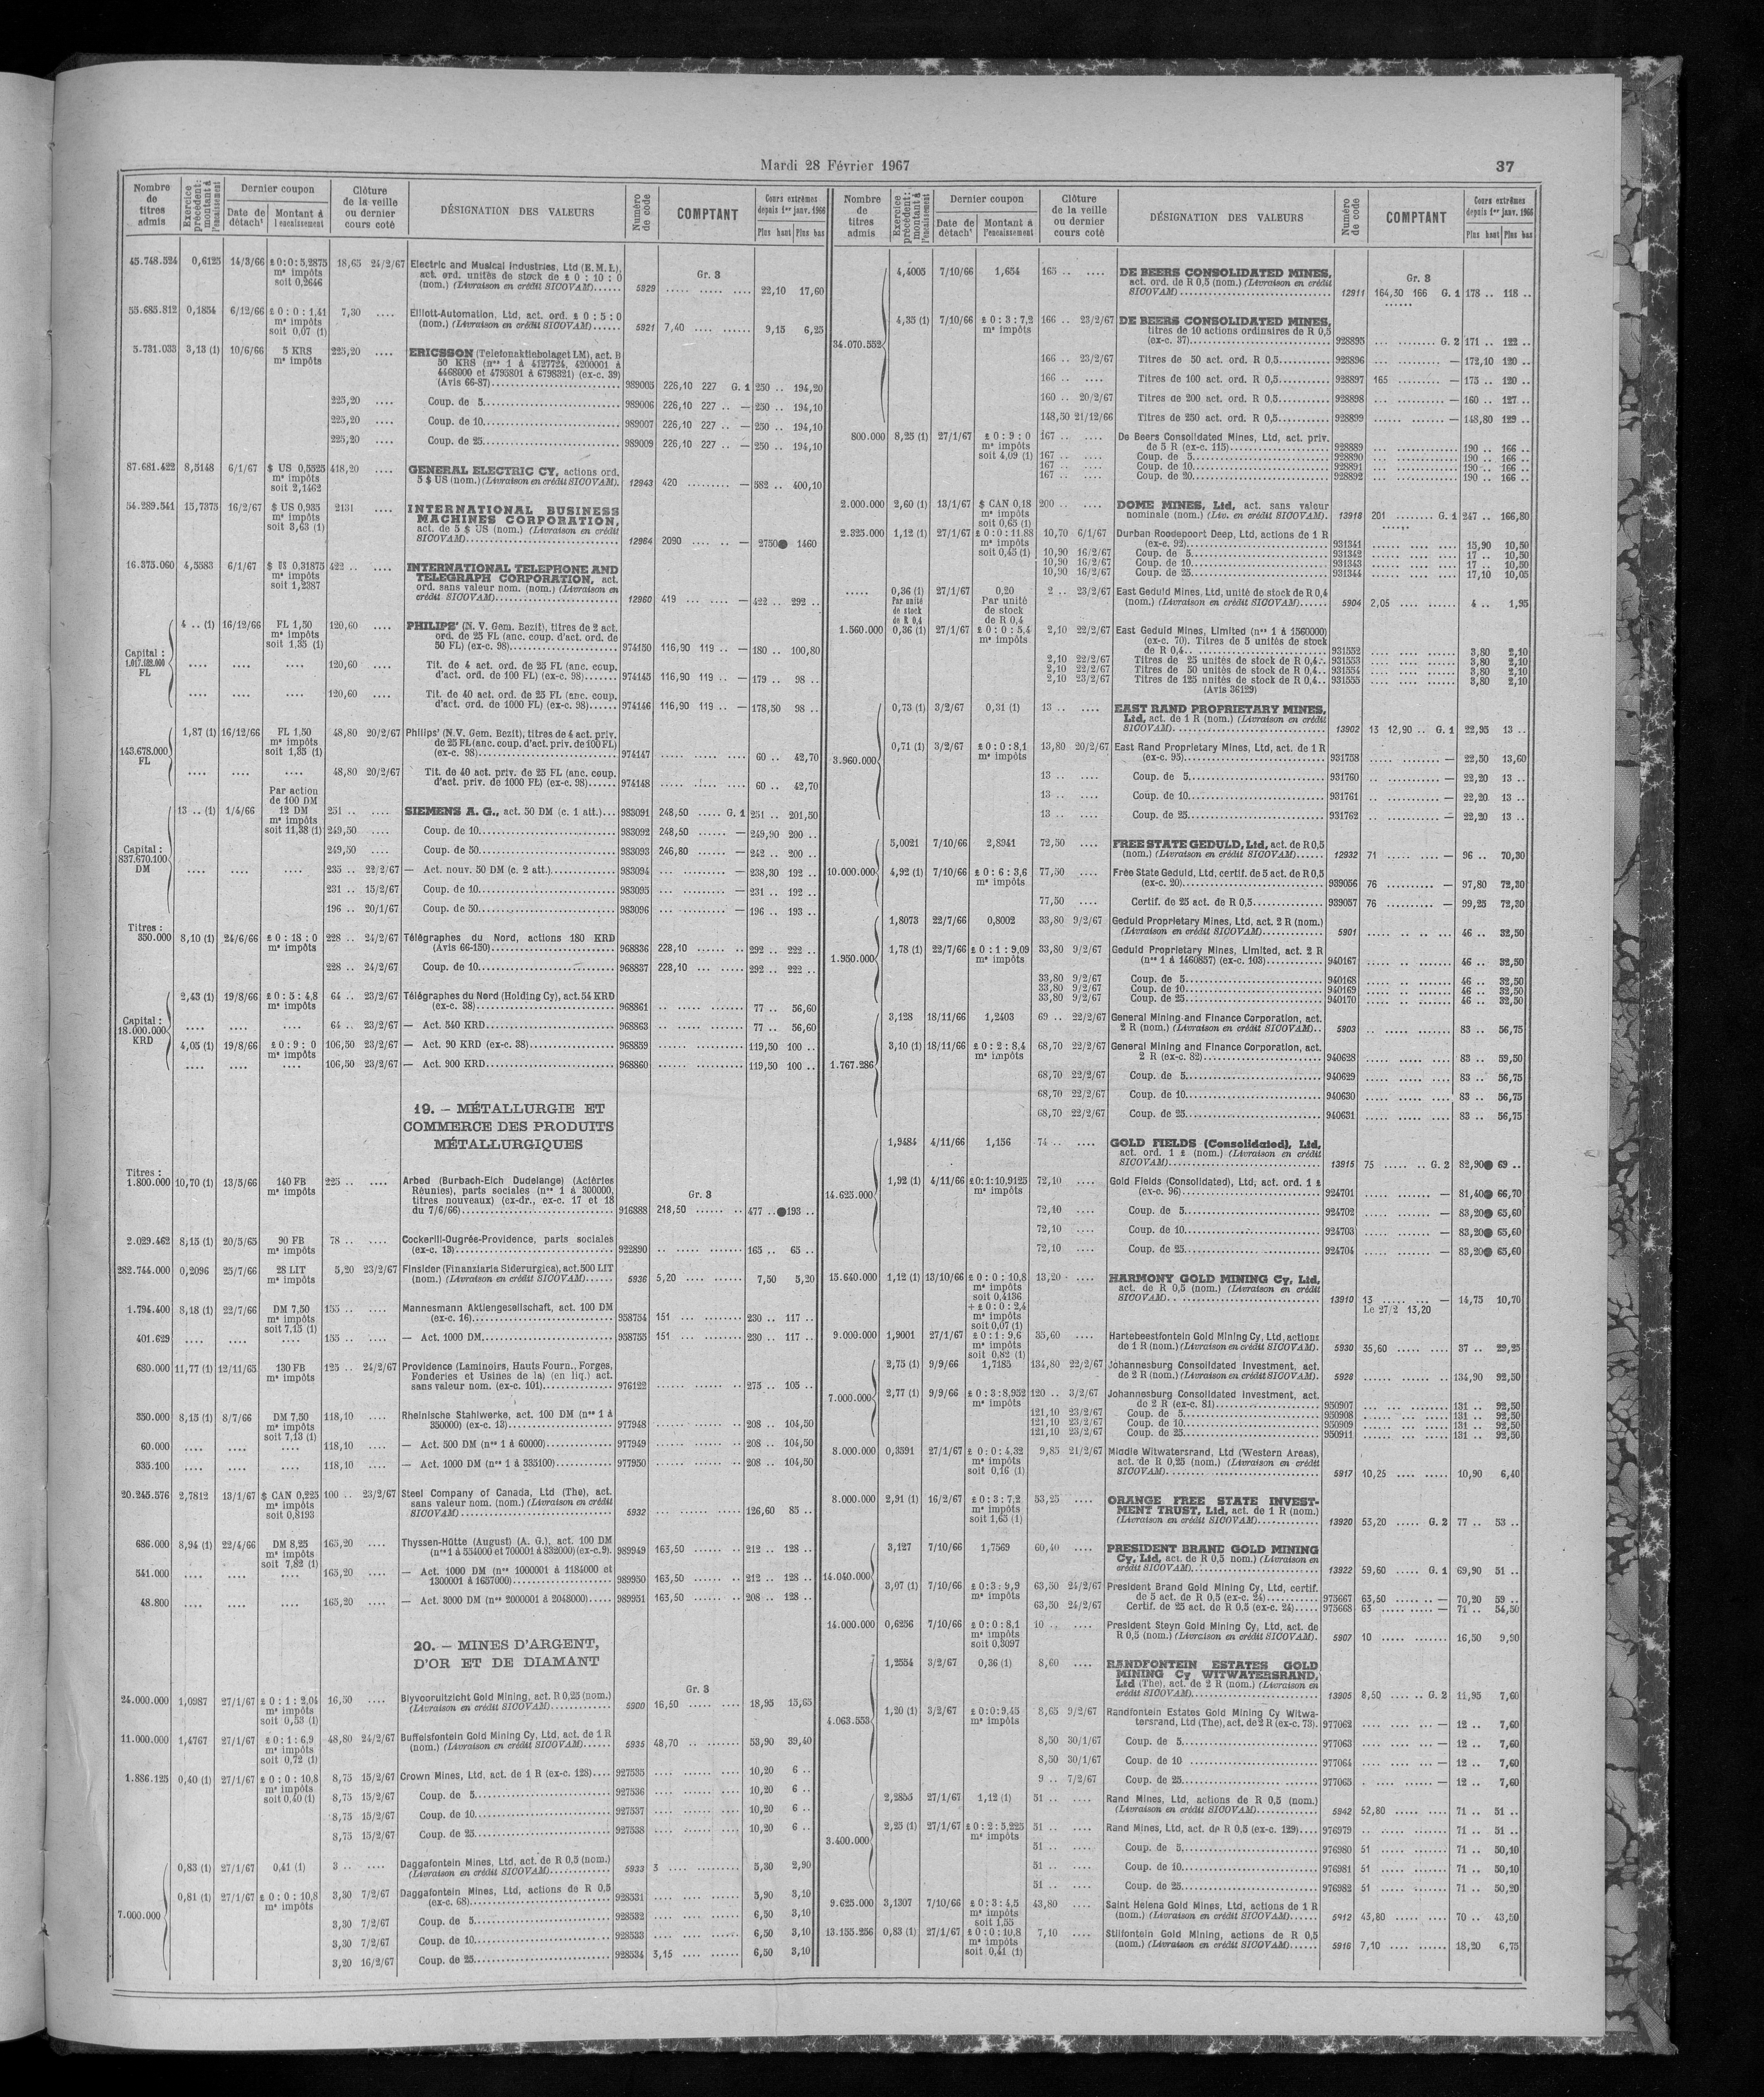 Mardi 28 Février 1967
37
Nombre de titres admis | Exercice précédent: montant à l'encaissement | Dernier coupon | Date de détach¹ | Montant à l'encaissement | Clôture de la veille ou dernier cours coté | DÉSIGNATION DES VALEURS | Numéro de code | COMPTANT | Cours extrêmes depuis 1er janv. 1966 | Plus haut | Plus bas
45.748.524 0,6125 14/3/66 £0:0:5,2875 18,65 24/2/67 Electric and Musical Industries, Ltd (E.M.I.),
mˢ impôts act. ord. unités de stock de £ 0 : 10 : 0 Gr. 3
soit 0,2646 (nom.) (Livraison en crédit SICOVAM)...... 5929 ..... ..... .... 22,10 17,60
55.685.812 0,1854 6/12/66 £0:0:1,41 7,30 .... Elliott-Automation, Ltd, act. ord. £ 0 : 5 : 0
mˢ impôts (nom.) (Livraison en crédit SICOVAM)...... 5921 7,40 .... ...... 9,15 6,25
soit 0,07 (1)
5.731.033 3,13 (1) 10/6/66 5 KRS 225,20 .... ERICSSON (Telefonaktiebolaget LM), act. B
mˢ impôts 50 KRS (nᵒˢ 1 à 4127724, 4200001 à
4468000 et 4795801 à 6798321) (ex-c. 39)
(Avis 66-87)............ 989005 226,10 227 G. 1 250 .. 194,20
225,20 .... Coup. de 5............ 989006 226,10 227 .. — 250 .. 194,10
225,20 .... Coup. de 10............ 989007 226,10 227 .. — 250 .. 194,10
225,20 .... Coup. de 25............ 989009 226,10 227 .. — 250 .. 194,10
87.681.422 8,5148 6/1/67 $ US 0,5525 418,20 .... GENERAL ELECTRIC CY, actions ord.
mˢ impôts 5 $ US (nom.) (Livraison en crédit SICOVAM). 12943 420 ......... — 582 .. 400,10
soit 2,1462
54.289.541 15,7375 16/2/67 $ US 0,935 2131 .... INTERNATIONAL BUSINESS
mˢ impôts MACHINES CORPORATION,
soit 3,63 (1) act. de 5 $ US (nom.) (Livraison en crédit
SICOVAM)............ 12964 2090 .... .. — 2750● 1460
16.375.060 4,5583 6/1/67 $ US 0,31875 422 .. .... INTERNATIONAL TELEPHONE AND
mˢ impôts TELEGRAPH CORPORATION, act.
soit 1,2387 ord. sans valeur nom. (nom.) (Livraison en
crédit SICOVAM)............ 12960 419 ... .... — 422 .. 292 ..
Capital : 1.017.622.000 FL
4 .. (1) 16/12/66 FL 1,50 120,60 .... PHILIPS' (N. V. Gem. Bezit), titres de 2 act.
mˢ impôts ord. de 25 FL (anc. coup. d'act. ord. de
soit 1,35 (1) 50 FL) (ex-c. 98)............ 974150 116,90 119 .. — 180 .. 100,80
.... .... .... 120,60 .... Tit. de 4 act. ord. de 25 FL (anc. coup.
d'act. ord. de 100 FL) (ex-c. 98)...... 974145 116,90 119 .. — 179 .. 98 ..
.... .... .... 120,60 .... Tit. de 40 act. ord. de 25 FL (anc. coup.
d'act. ord. de 1000 FL) (ex-c. 98)...... 974146 116,90 119 .. — 178,50 98 ..
143.678.000 FL
1,87 (1) 16/12/66 FL 1,50 48,80 20/2/67 Philips' (N.V. Gem. Bezit), titres de 4 act. priv.
mˢ impôts de 25 FL (anc. coup. d'act. priv. de 100 FL)
soit 1,35 (1) (ex-c. 98)............ 974147 ..... ..... .... 60 .. 42,70
.... .... .... 48,80 20/2/67 Tit. de 40 act. priv. de 25 FL (anc. coup.
d'act. priv. de 1000 FL) (ex-c. 98)...... 974148 ..... ..... .... 60 .. 42,70
Capital : 837.670.100 DM
Par action
de 100 DM
13 .. (1) 1/4/66 12 DM 251 .. .... SIEMENS A. G., act. 50 DM (c. 1 att.)... 983091 248,50 ..... G. 1 251 .. 201,50
mˢ impôts
soit 11,38 (1) 249,50 .... Coup. de 10............ 983092 248,50 ...... — 249,90 200 ..
249,50 .... Coup. de 50............ 983093 246,80 ...... — 242 .. 200 ..
.... .... .... 235 .. 22/2/67 — Act. nouv. 50 DM (c. 2 att.)............ 983094 ... ......... — 238,30 192 ..
231 .. 15/2/67 Coup. de 10............ 983095 ... ......... — 231 .. 192 ..
196 .. 20/1/67 Coup. de 50............ 983096 ... ......... — 196 .. 193 ..
Titres :
350.000 8,10 (1) 24/6/66 £0:18:0 228 .. 24/2/67 Télégraphes du Nord, actions 180 KRD
mˢ impôts (Avis 66-150)............ 968836 228,10 ...... .. 292 .. 222 ..
228 .. 24/2/67 Coup. de 10............ 968837 228,10 ... ...... 292 .. 222 ..
Capital : 18.000.000 KRD
2,43 (1) 19/8/66 £0:5:4,8 64 .. 23/2/67 Télégraphes du Nord (Holding Cy), act. 54 KRD
mˢ impôts (ex-c. 38)............ 968861 .. ..... ...... 77 .. 56,60
.... .... .... 64 .. 23/2/67 — Act. 540 KRD............ 968863 .. ..... ...... 77 .. 56,60
4,05 (1) 19/8/66 £0:9:0 106,50 23/2/67 — Act. 90 KRD (ex-c. 38)............ 968859 ...... ..... .... 119,50 100 ..
mˢ impôts
.... .... .... 106,50 23/2/67 — Act. 900 KRD............ 968860 ...... ..... .... 119,50 100 ..
19. — MÉTALLURGIE ET
COMMERCE DES PRODUITS
MÉTALLURGIQUES
Titres :
1.800.000 10,70 (1) 13/5/66 140 FB 225 .. .... Arbed (Burbach-Eich Dudelange) (Aciéries
mˢ impôts Réunies), parts sociales (nᵒˢ 1 à 300000, Gr. 3
titres nouveaux) (ex-dr., ex-c. 17 et 18
du 7/6/66)............ 916888 218,50 ...... .. 477 ..●193 ..
2.029.462 8,15 (1) 20/5/65 90 FB 78 .. .... Cockerill-Ougrée-Providence, parts sociales
mˢ impôts (ex-c. 13)............ 922890 .. ..... ....... 165 .. 65 ..
282.744.000 0,2096 25/7/66 28 LIT 5,20 23/2/67 Finsider (Finanziaria Siderurgica), act. 500 LIT
mˢ impôts (nom.) (Livraison en crédit SICOVAM)...... 5936 5,20 .... ...... 7,50 5,20
1.794.400 8,18 (1) 22/7/66 DM 7,50 155 .. .... Mannesmann Aktiengesellschaft, act. 100 DM
mˢ impôts (ex-c. 16)............ 958754 151 ... ........ 230 .. 117 ..
soit 7,15 (1)
401.629 .... .... .... 155 .. .... — Act. 1000 DM............ 958755 151 ... ........ 230 .. 117 ..
680.000 11,77 (1) 12/11/65 130 FB 125 .. 24/2/67 Providence (Laminoirs, Hauts Fourn., Forges,
mˢ impôts Fonderies et Usines de la) (en liq.) act.
sans valeur nom. (ex-c. 101)............ 976122 ...... ...... .. 275 .. 105 ..
350.000 8,15 (1) 8/7/66 DM 7,50 118,10 .... Rheinische Stahlwerke, act. 100 DM (nᵒˢ 1 à
mˢ impôts 350000) (ex-c. 13)............ 977948 ...... ...... .. 208 .. 104,50
soit 7,13 (1)
60.000 .... .... .... 118,10 .... — Act. 500 DM (nᵒˢ 1 à 60000)............ 977949 ...... ...... .. 208 .. 104,50
335.100 .... .... .... 118,10 .... — Act. 1000 DM (nᵒˢ 1 à 335100)............ 977950 ...... ...... .. 208 .. 104,50
20.245.576 2,7812 13/1/67 $ CAN 0,225 100 .. 23/2/67 Steel Company of Canada, Ltd (The), act.
mˢ impôts sans valeur nom. (nom.) (Livraison en crédit
soit 0,8193 SICOVAM)............ 5932 ... ...... ..... 126,60 85 ..
686.000 8,94 (1) 22/4/66 DM 8,25 165,20 .... Thyssen-Hütte (August) (A. G.), act. 100 DM
mˢ impôts (nᵒˢ 1 à 554000 et 700001 à 832000) (ex-c. 9). 989949 163,50 ...... .. 212 .. 128 ..
soit 7,82 (1)
541.000 .... .... .... 165,20 .... — Act. 1000 DM (nᵒˢ 1000001 à 1184000 et
1300001 à 1657000)............ 989950 163,50 ...... .. 212 .. 128 ..
48.800 .... .... .... 165,20 .... — Act. 3000 DM (nᵒˢ 2000001 à 2048000)..... 989951 163,50 ...... .. 208 .. 128 ..
20. — MINES D'ARGENT,
D'OR ET DE DIAMANT
Gr. 3
24.000.000 1,0987 27/1/67 £0:1:2,04 16,50 .... Blyvooruitzicht Gold Mining, act. R 0,25 (nom.)
mˢ impôts (Livraison en crédit SICOVAM)............ 5900 16,50 ..... .... 18,95 15,65
soit 0,53 (1)
11.000.000 1,4767 27/1/67 £0:1:6,9 48,80 24/2/67 Buffelsfontein Gold Mining Cy, Ltd, act. de 1 R
mˢ impôts (nom.) (Livraison en crédit SICOVAM)...... 5935 48,70 .. ...... 53,90 39,40
soit 0,72 (1)
1.886.125 0,40 (1) 27/1/67 £0:0:10,8 8,75 15/2/67 Crown Mines, Ltd, act. de 1 R (ex-c. 128).... 927535 .... ..... .... 10,20 6 ..
mˢ impôts 8,75 15/2/67 Coup. de 5............ 927536 .... ..... .... 10,20 6 ..
soit 0,40 (1) 8,75 15/2/67 Coup. de 10............ 927537 .... ..... .... 10,20 6 ..
8,75 15/2/67 Coup. de 25............ 927538 .... ..... .... 10,20 6 ..
7.000.000
0,83 (1) 27/1/67 0,41 (1) 3 .. .... Daggafontein Mines, Ltd, act. de R 0,5 (nom.)
(Livraison en crédit SICOVAM)............ 5933 3 .... .......... 5,30 2,90
0,81 (1) 27/1/67 £0:0:10,8 3,30 7/2/67 Daggafontein Mines, Ltd, actions de R 0,5
mˢ impôts (ex-c. 68)............ 928531 .... .... ...... 5,90 3,10
3,30 7/2/67 Coup. de 5............ 928532 .... .... ...... 6,50 3,10
3,30 7/2/67 Coup. de 10............ 928533 .... .... ...... 6,50 3,10
3,20 16/2/67 Coup. de 25............ 928534 3,15 .... ...... 6,50 3,10
Nombre de titres admis | Exercice précédent: montant à l'encaissement | Dernier coupon | Date de détach¹ | Montant à l'encaissement | Clôture de la veille ou dernier cours coté | DÉSIGNATION DES VALEURS | Numéro de code | COMPTANT | Cours extrêmes depuis 1er janv. 1966 | Plus haut | Plus bas
34.070.552
4,4005 7/10/66 1,654 165 .. .... DE BEERS CONSOLIDATED MINES,
act. ord. de R 0,5 (nom.) (Livraison en crédit Gr. 3
SICOVAM)............ 12911 164,30 166 G. 1 178 .. 118 ..
4,35 (1) 7/10/66 £0:3:7,2 166 .. 23/2/67 DE BEERS CONSOLIDATED MINES,
mˢ impôts titres de 10 actions ordinaires de R 0,5
(ex-c. 37)............ 928895 ... ........ G. 2 171 .. 122 ..
166 .. 23/2/67 Titres de 50 act. ord. R 0,5............ 928896 ... ......... — 172,10 120 ..
166 .. .... Titres de 100 act. ord. R 0,5............ 928897 165 ......... — 175 .. 120 ..
160 .. 20/2/67 Titres de 200 act. ord. R 0,5............ 928898 ... ......... — 160 .. 127 ..
148,50 21/12/66 Titres de 250 act. ord. R 0,5............ 928899 ... ......... — 148,80 129 ..
800.000 8,25 (1) 27/1/67 £0:9:0 167 .. .... De Beers Consolidated Mines, Ltd, act. priv.
mˢ impôts de 5 R (ex-c. 115)............ 928889 ... ..... ...... 190 .. 166 ..
soit 4,09 (1) 167 .. .... Coup. de 5............ 928890 ... ..... ...... 190 .. 166 ..
167 .. .... Coup. de 10............ 928891 ... ..... ...... 190 .. 166 ..
167 .. .... Coup. de 20............ 928892 ... ..... ...... 190 .. 166 ..
2.000.000 2,60 (1) 13/1/67 $ CAN 0,18 200 .. .... DOME MINES, Ltd, act. sans valeur
mˢ impôts nominale (nom.) (Liv. en crédit SICOVAM). 13918 201 ........ G. 1 247 .. 166,80
soit 0,65 (1)
2.325.000 1,12 (1) 27/1/67 £0:0:11.88 10,70 6/1/67 Durban Roodepoort Deep, Ltd, actions de 1 R
mˢ impôts (ex-c. 92)............ 931341 ...... .... ...... 15,90 10,50
soit 0,45 (1) 10,90 16/2/67 Coup. de 5............ 931342 ...... .... ...... 17 .. 10,50
10,90 16/2/67 Coup. de 10............ 931343 ...... .... ...... 17 .. 10,50
10,90 16/2/67 Coup. de 25............ 931344 ...... .... ...... 17,10 10,05
..... 0,36 (1) 27/1/67 0,20 2 .. 23/2/67 East Geduld Mines, Ltd, unité de stock de R 0,4
Par unité de stock de R 0,4 Par unité de stock de R 0,4 (nom.) (Livraison en crédit SICOVAM)...... 5904 2,05 .... ...... 4 .. 1,95
1.560.000 0,36 (1) 27/1/67 £0:0:5,4 2,10 22/2/67 East Geduld Mines, Limited (nᵒˢ 1 à 1560000)
mˢ impôts (ex-c. 70). Titres de 5 unités de stock
de R 0,4............ 931552 .... .... ...... 3,80 2,10
2,10 22/2/67 Titres de 25 unités de stock de R 0,4.. 931553 .... .... ...... 3,80 2,10
2,10 22/2/67 Titres de 50 unités de stock de R 0,4.. 931554 .... .... ...... 3,80 2,10
2,10 23/2/67 Titres de 125 unités de stock de R 0,4.. 931555 .... .... ...... 3,80 2,10
(Avis 36129)
3.960.000
0,73 (1) 3/2/67 0,31 (1) 13 .. .... EAST RAND PROPRIETARY MINES,
Ltd, act. de 1 R (nom.) (Livraison en crédit
SICOVAM)............ 13902 13 12,90 .. G. 1 22,95 13 ..
0,71 (1) 3/2/67 £0:0:8,1 13,80 20/2/67 East Rand Proprietary Mines, Ltd, act. de 1 R
mˢ impôts (ex-c. 95)............ 931758 .. .......... — 22,50 13,60
13 .. .... Coup. de 5............ 931760 .. .......... — 22,20 13 ..
13 .. .... Coup. de 10............ 931761 .. .......... — 22,20 13 ..
13 .. .... Coup. de 25............ 931762 .. .......... — 22,20 13 ..
10.000.000
5,0021 7/10/66 2,8941 72,50 .... FREE STATE GEDULD, Ltd, act. de R 0,5
(nom.) (Livraison en crédit SICOVAM)...... 12932 71 .......... — 96 .. 70,30
4,92 (1) 7/10/66 £0:6:3,6 77,50 .... Free State Geduld, Ltd, certif. de 5 act. de R 0,5
mˢ impôts (ex-c. 20)............ 939056 76 .......... — 97,80 72,30
77,50 .... Certif. de 25 act. de R 0,5............ 939057 76 .......... — 99,25 72,30
1.950.000
1,8073 22/7/66 0,8002 33,80 9/2/67 Geduld Proprietary Mines, Ltd, act. 2 R (nom.)
(Livraison en crédit SICOVAM)............ 5901 ..... .. .. ... 46 .. 32,50
1,78 (1) 22/7/66 £0:1:9,09 33,80 9/2/67 Geduld Proprietary Mines, Limited, act. 2 R
mˢ impôts (nᵒˢ 1 à 1460857) (ex-c. 103)............ 940167 ..... .. ...... 46 .. 32,50
33,80 9/2/67 Coup. de 5............ 940168 ..... .. ...... 46 .. 32,50
33,80 9/2/67 Coup. de 10............ 940169 ..... .. ...... 46 .. 32,50
33,80 9/2/67 Coup. de 25............ 940170 ..... .. ...... 46 .. 32,50
1.767.286
3,128 18/11/66 1,2403 69 .. 22/2/67 General Mining and Finance Corporation, act.
2 R (nom.) (Livraison en crédit SICOVAM).. 5903 .. ..... ...... 83 .. 56,75
3,10 (1) 18/11/66 £0:2:8,4 68,70 22/2/67 General Mining and Finance Corporation, act.
mˢ impôts 2 R (ex-c. 82)............ 940628 ..... ..... .... 83 .. 59,50
68,70 22/2/67 Coup. de 5............ 940629 ..... ..... .... 83 .. 56,75
68,70 22/2/67 Coup. de 10............ 940630 ..... ..... .... 83 .. 56,75
68,70 22/2/67 Coup. de 25............ 940631 ..... ..... .... 83 .. 56,75
14.625.000
1,9484 4/11/66 1,156 74 .. .... GOLD FIELDS (Consolidated), Ltd,
act. ord. 1 £ (nom.) (Livraison en crédit
SICOVAM)............ 13915 75 ..... .. G. 2 82,90● 69 ..
1,92 (1) 4/11/66 £0:1:10,9125 72,10 .... Gold Fields (Consolidated), Ltd, act. ord. 1 £
mˢ impôts (ex-c. 96)............ 924701 ..... ...... — 81,40● 66,70
72,10 .... Coup. de 5............ 924702 ..... ...... — 83,20● 65,60
72,10 .... Coup. de 10............ 924703 ..... ...... — 83,20● 65,60
72,10 .... Coup. de 25............ 924704 ..... ...... — 83,20● 65,60
15.640.000 1,12 (1) 13/10/66 £0:0:10,8 13,20 .... HARMONY GOLD MINING Cy, Ltd,
mˢ impôts act. de R 0,5 (nom.) (Livraison en crédit
soit 0,4136 SICOVAM)............ 13910 13 ..... ... — 14,75 10,70
+ £0:0:2,4 Le 27/2 13,20
mˢ impôts
soit 0,07 (1)
9.000.000 1,9001 27/1/67 £0:1:9,6 35,60 .... Hartebeestfontein Gold Mining Cy, Ltd, actions
mˢ impôts de 1 R (nom.) (Livraison en crédit SICOVAM). 5930 35,60 ..... .... 37 .. 29,25
soit 0,82 (1)
7.000.000
2,75 (1) 9/9/66 1,7185 134,80 22/2/67 Johannesburg Consolidated Investment, act.
de 2 R (nom.) (Livraison en crédit SICOVAM). 5928 ...... ..... ... 134,90 92,50
2,77 (1) 9/9/66 £0:3:8,952 120 .. 3/2/67 Johannesburg Consolidated Investment, act.
mˢ impôts de 2 R (ex-c. 81)............ 950907 ... ... ....... 131 .. 92,50
121,10 23/2/67 Coup. de 5............ 950908 ... ... ....... 131 .. 92,50
121,10 23/2/67 Coup. de 10............ 950909 ... ... ....... 131 .. 92,50
121,10 23/2/67 Coup. de 25............ 950911 ... ... ....... 131 .. 92,50
8.000.000 0,3591 27/1/67 £0:0:4,32 9,85 21/2/67 Middle Witwatersrand, Ltd (Western Areas),
mˢ impôts act. de R 0,25 (nom.) (Livraison en crédit
soit 0,16 (1) SICOVAM)............ 5917 10,25 .... ..... 10,90 6,40
8.000.000 2,91 (1) 16/2/67 £0:3:7,2 53,25 .... ORANGE FREE STATE INVEST-
mˢ impôts MENT TRUST, Ltd, act. de 1 R (nom.)
soit 1,63 (1) (Livraison en crédit SICOVAM)............ 13920 53,20 ..... G. 2 77 .. 53 ..
14.040.000
3,127 7/10/66 1,7569 60,40 .... PRESIDENT BRAND GOLD MINING
Cy, Ltd, act. de R 0,5 nom.) (Livraison en
crédit SICOVAM)............ 13922 59,60 ..... G. 1 69,90 51 ..
3,07 (1) 7/10/66 £0:3:9,9 63,50 24/2/67 President Brand Gold Mining Cy, Ltd, certif.
mˢ impôts de 5 act. de R 0,5 (ex-c. 24)...... 975667 63,50 ..... — 70,20 59 ..
63,50 24/2/67 Certif. de 25 act. de R 0,5 (ex-c. 24)..... 975668 63 ......... — 71 .. 54,50
14.000.000 0,6256 7/10/66 £0:0:8,1 10 .. .... President Steyn Gold Mining Cy, Ltd, act. de
mˢ impôts R 0,5 (nom.) (Livraison en crédit SICOVAM). 5907 10 ..... ....... 16,50 9,90
soit 0,3097
4.063.553
1,2554 3/2/67 0,36 (1) 8,60 .... RANDFONTEIN ESTATES GOLD
MINING Cy WITWATERSRAND,
Ltd (The), act. de 2 R (nom.) (Livraison en
crédit SICOVAM)............ 13905 8,50 ..... .. G. 2 11,95 7,60
1,20 (1) 3/2/67 £0:0:9,45 8,65 9/2/67 Randfontein Estates Gold Mining Cy Witwa-
mˢ impôts tersrand, Ltd (The), act. de 2 R (ex-c. 73). 977062 .... ..... ... — 12 .. 7,60
8,50 30/1/67 Coup. de 5............ 977063 .... ..... ... — 12 .. 7,60
8,50 30/1/67 Coup. de 10 ............ 977064 .... ..... ... — 12 .. 7,60
9 .. 7/2/67 Coup. de 25............ 977065 .... ..... ... — 12 .. 7,60
3.400.000
2,2855 27/1/67 1,12 (1) 51 .. .... Rand Mines, Ltd, actions de R 0,5 (nom.)
(Livraison en crédit SICOVAM)............ 5942 52,80 ..... .... 71 .. 51 ..
2,25 (1) 27/1/67 £0:2:5,225 51 .. .... Rand Mines, Ltd, act. de R 0,5 (ex-c. 129).... 976979 .. ..... ....... 71 .. 51 ..
mˢ impôts 51 .. .... Coup. de 5............ 976980 51 ..... ....... 71 .. 50,10
51 .. .... Coup. de 10............ 976981 51 ..... ....... 71 .. 50,10
51 .. .... Coup. de 25............ 976982 51 ..... ....... 71 .. 50,20
9.625.000 3,1307 7/10/66 £0:3:4,5 43,80 .... Saint Helena Gold Mines, Ltd, actions de 1 R
mˢ impôts (nom.) (Livraison en crédit SICOVAM)...... 5912 43,80 .... ...... 70 .. 43,50
soit 1,55
13.155.256 0,83 (1) 27/1/67 £0:0:10,8 7,10 .... Stilfontein Gold Mining, actions de R 0,5
mˢ impôts (nom.) (Livraison en crédit SICOVAM)...... 5916 7,10 .... ...... 18,20 6,75
soit 0,41 (1)